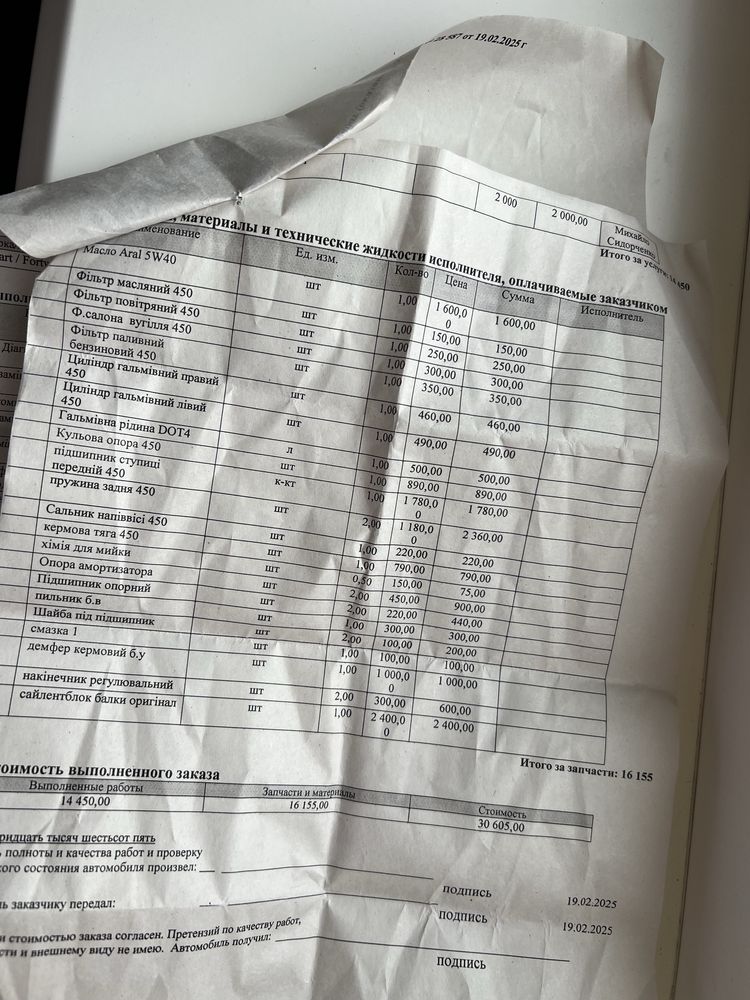 587 от 19.02.2025 г
2 000 2 000,00 Михайло Сидорченко
Итого за услуги: 14 450
материалы и технические жидкости исполнителя, оплачиваемые заказчиком
Ед. изм. Кол-во Цена Сумма Исполнитель
Масло Aral 5W40 шт 1,00 1 600,00 1 600,00
Фільтр масляний 450 шт 1,00 150,00 150,00
Фільтр повітряний 450 шт 1,00 250,00 250,00
Ф.салона вугілля 450 шт 1,00 300,00 300,00
Фільтр паливний бензиновий 450 шт 1,00 350,00 350,00
Циліндр гальмівний правий 450 шт 1,00 460,00 460,00
Циліндр гальмівний лівий 450 шт 1,00 490,00 490,00
Гальмівна рідина DOT4 л 1,00 500,00 500,00
Кульова опора 450 шт 1,00 890,00 890,00
підшипник ступиці передній 450 к-кт 1,00 1 780,00 1 780,00
пружина задня 450 шт 2,00 1 180,00 2 360,00
Сальник напіввісі 450 шт 1,00 220,00 220,00
кермова тяга 450 шт 1,00 790,00 790,00
хімія для мийки шт 0,50 150,00 75,00
Опора амортизатора шт 2,00 450,00 900,00
Підшипник опорний шт 2,00 220,00 440,00
пильник б.в шт 1,00 300,00 300,00
Шайба під підшипник шт 2,00 100,00 200,00
смазка 1 шт 1,00 100,00 100,00
демфер кермовий б.у шт 1,00 1 000,00 1 000,00
накінечник регулювальний шт 2,00 300,00 600,00
сайлентблок балки оригінал шт 1,00 2 400,00 2 400,00
Итого за запчасти: 16 155
выполненного заказа
Выполненные работы Запчасти и материалы Стоимость
14 450,00 16 155,00 30 605,00
тысяч шестьсот пять
полноты и качества работ и проверку
состояния автомобиля произвел:
подпись 19.02.2025
заказчику передал:
подпись 19.02.2025
и стоимостью заказа согласен. Претензий по качеству работ,
и внешнему виду не имею. Автомобиль получил:
подпись